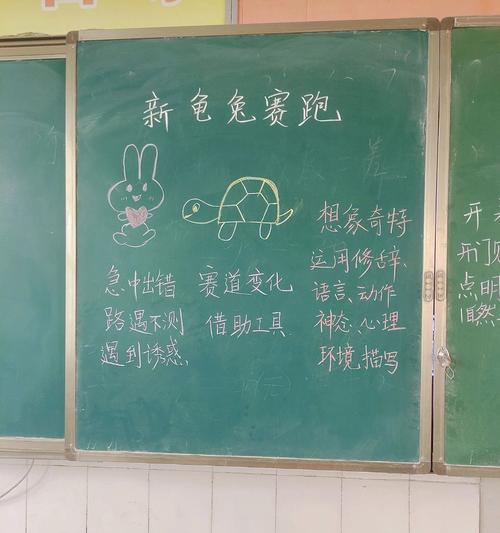 新龟兔赛跑
急中出错
路遇不测
遇到诱惑
赛道变化
借助工具
想象奇特
运用修辞、
语言、动作
神态、心理
环境描写
开
开门见
点明